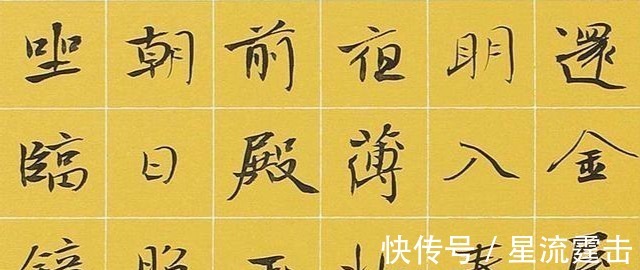 還金
明入
夜薄
前殿
朝日
坐臨
快传号 / 星流霆击